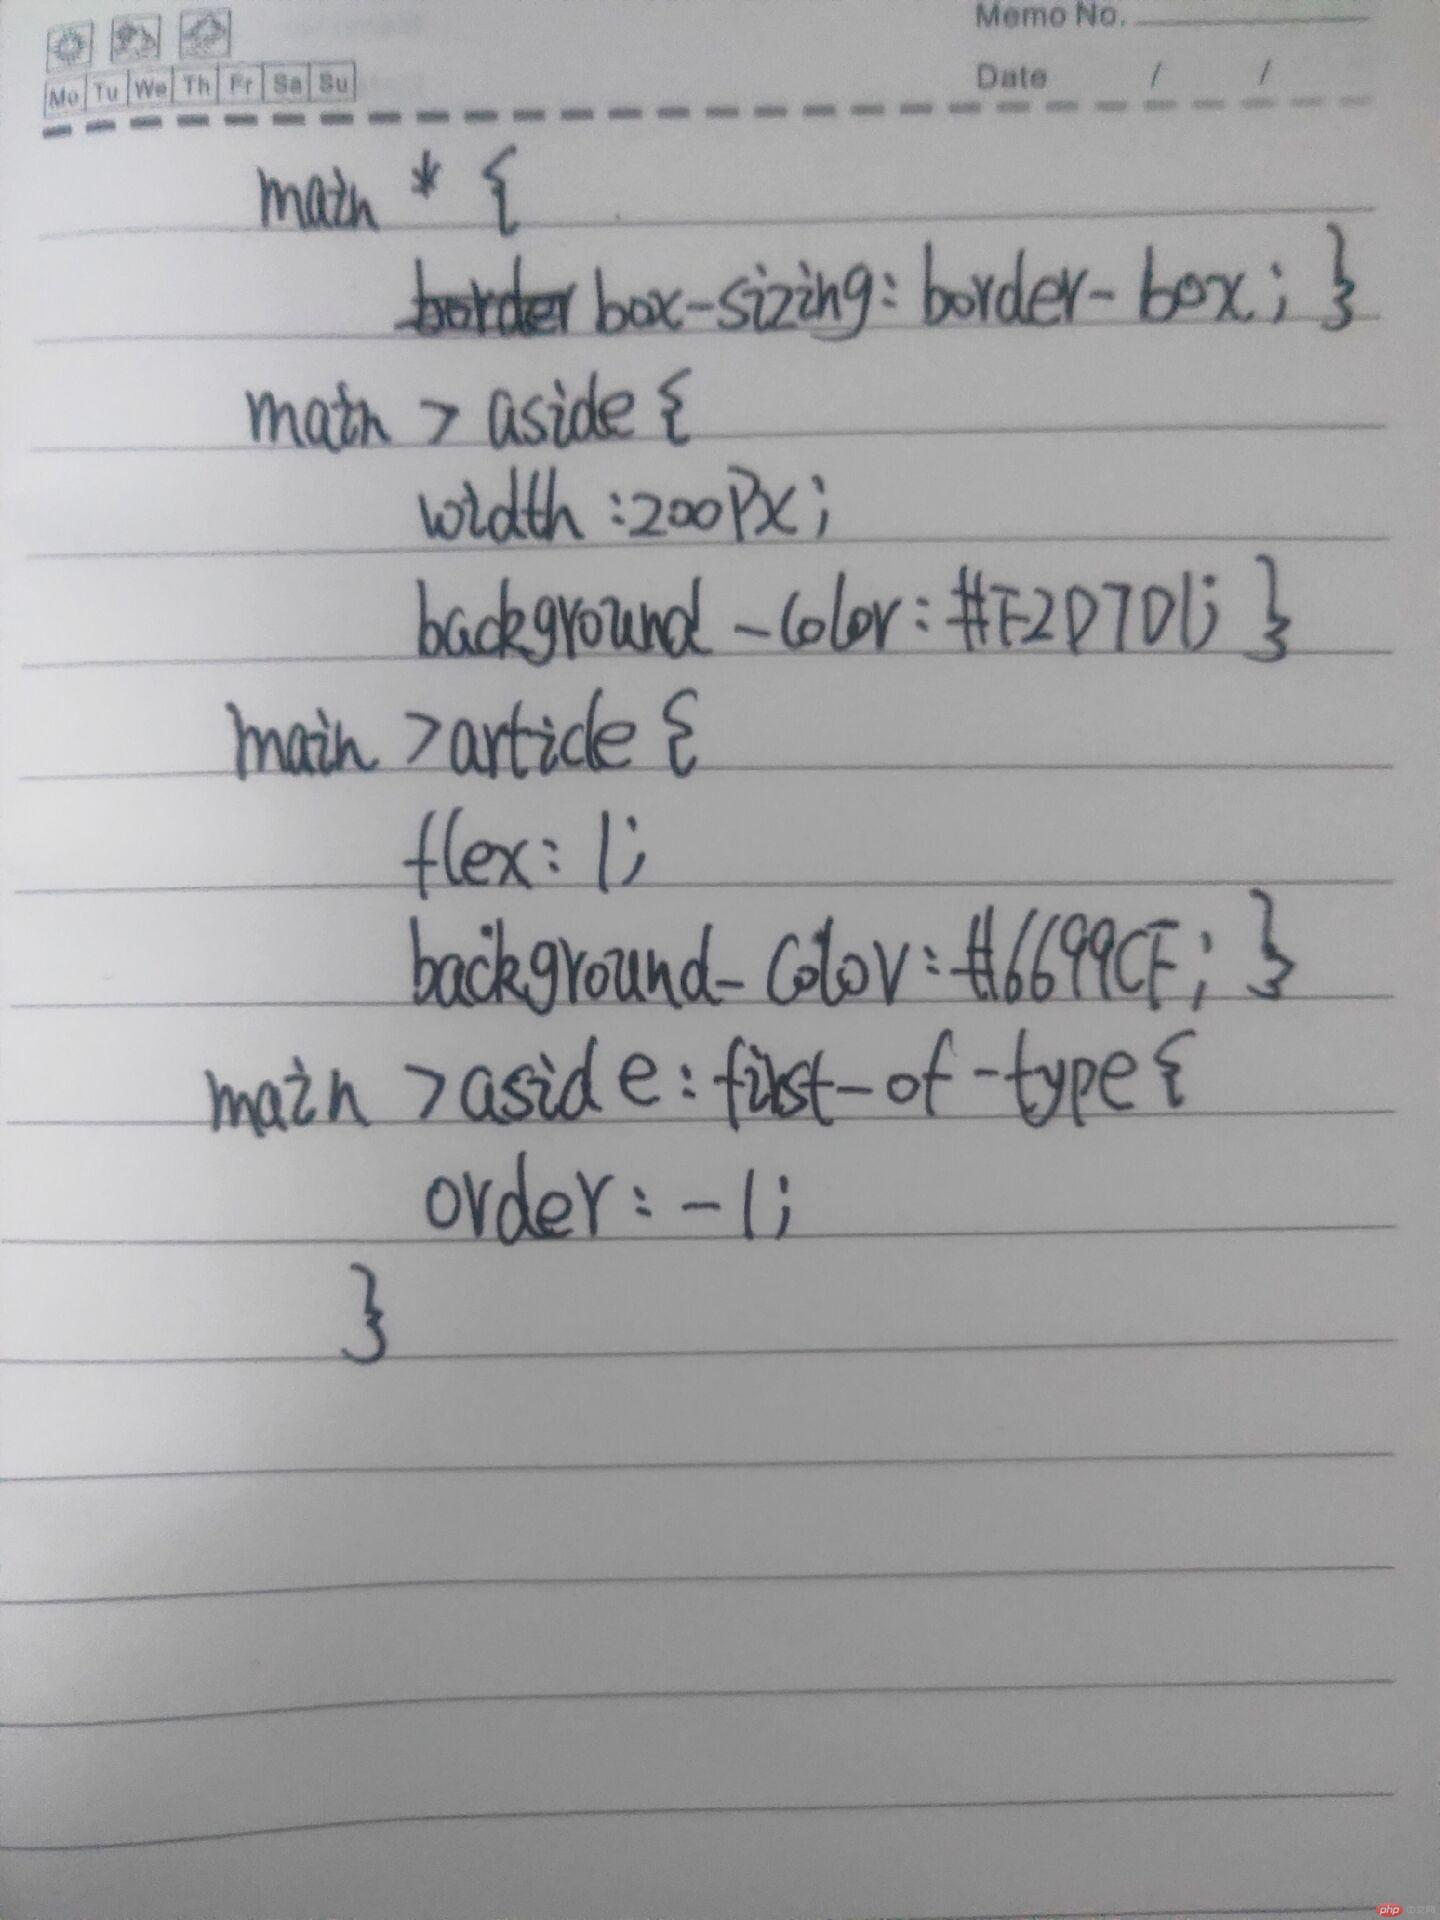 Memo No.
Mo Tu We Th Fr Sa Su
Date / /
main * {
box-sizing: border-box; }
main > aside {
width :200Px;
background -Color: #F2D7D1; }
main >article {
flex: 1;
background- Color: #6699CF; }
main >aside:first-of-type {
order: -1;
}
php 中文网